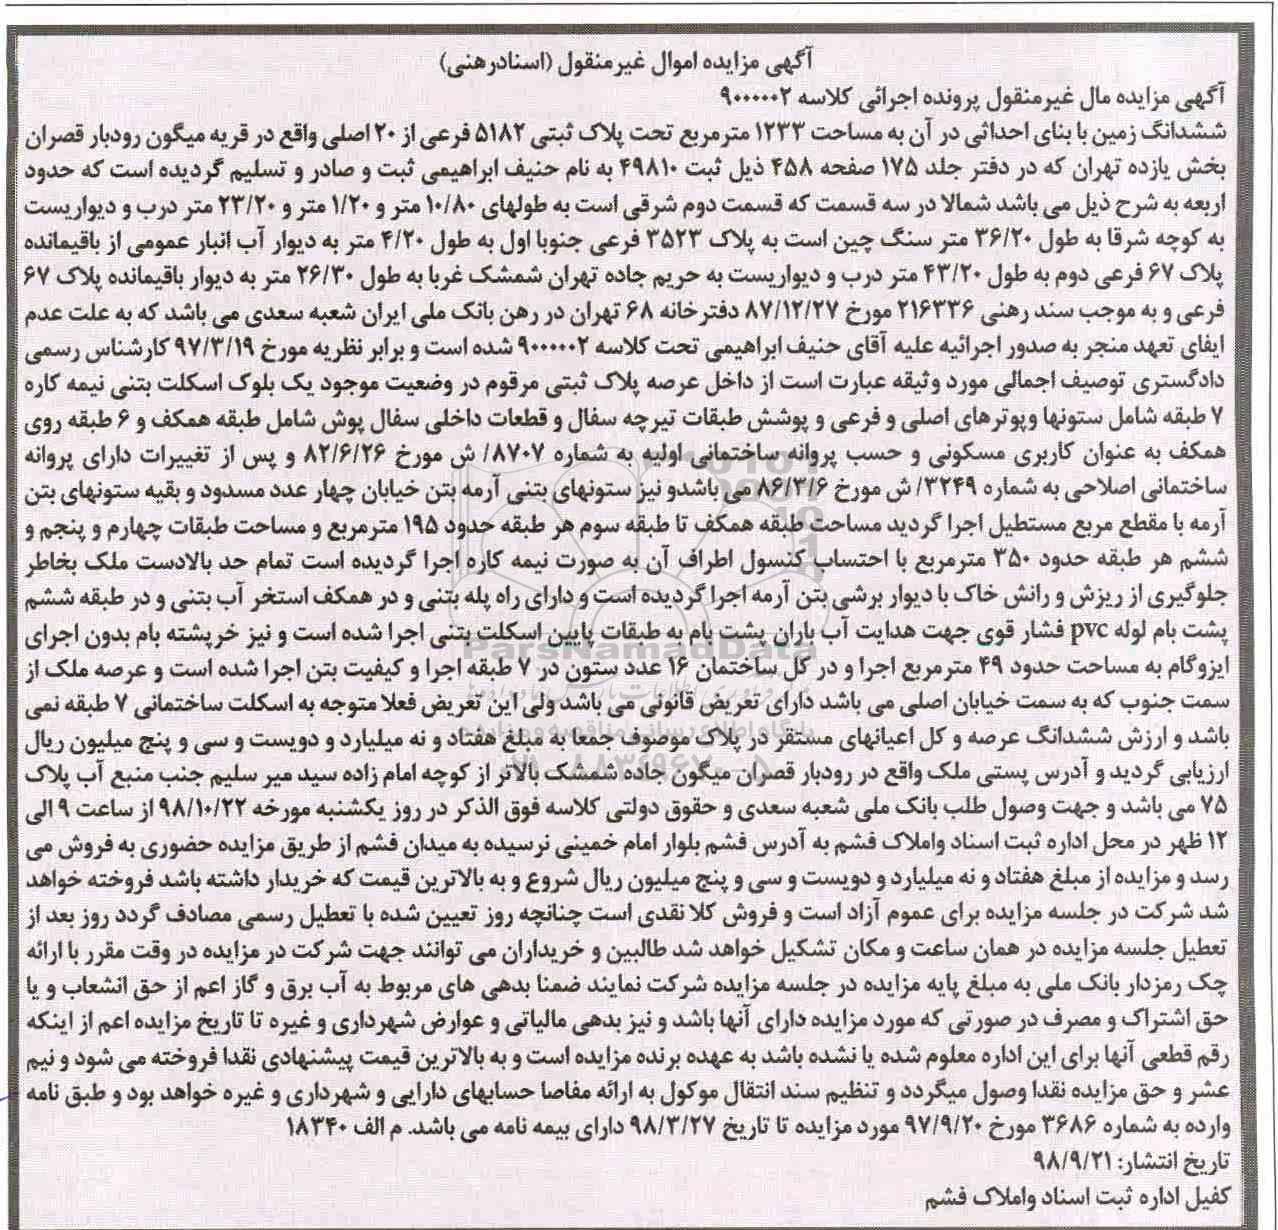 آگهی مزایده اموال غیرمنقول (اسنادرهنی)
آگهی مزایده مال غیرمنقول پرونده اجرائی کلاسه ۹۰۰۰۰۰۲
ششدانگ زمین با بنای احداثی در آن به مساحت ۱۲۳۳ مترمربع تحت پلاک ثبتی ۵۱۸۲ فرعی از ۲۰ اصلی واقع در قریه میگون رودبار قصران
بخش یازده تهران که در دفتر جلد ۱۷۵ صفحه ۴۵۸ ذیل ثبت ۴۹۸۱۰ به نام حنیف ابراهیمی ثبت و صادر و تسلیم گردیده است که حدود
اربعه به شرح ذیل می باشد شمالا در سه قسمت که قسمت دوم شرقی است به طولهای ۱۰/۸۰ متر و ۱/۲۰ متر و ۲۳/۲۰ متر درب و دیواریست
به کوچه شرقا به طول ۳۶/۲۰ متر سنگ چین است به پلاک ۳۵۲۳ فرعی جنوبا اول به طول ۴/۲۰ متر به دیوار آب انبار عمومی از باقیمانده
پلاک ۶۷ فرعی دوم به طول ۴۳/۲۰ متر درب و دیواریست به حریم جاده تهران شمشک غربا به طول ۲۶/۳۰ متر به دیوار باقیمانده پلاک ۶۷
فرعی و به موجب سند رهنی ۲۱۶۳۳۶ مورخ ۸۷/۱۲/۲۷ دفترخانه ۶۸ تهران در رهن بانک ملی ایران شعبه سعدی می باشد که به علت عدم
ایفای تعهد منجر به صدور اجرائیه علیه آقای حنیف ابراهیمی تحت کلاسه ۹۰۰۰۰۰۲ شده است و برابر نظریه مورخ ۹۷/۳/۱۹ کارشناس رسمی
دادگستری توصیف اجمالی مورد وثیقه عبارت است از داخل عرصه پلاک ثبتی مرقوم در وضعیت موجود یک بلوک اسکلت بتنی نیمه کاره
۷ طبقه شامل ستونها وپوترهای اصلی و فرعی و پوشش طبقات تیرچه سفال و قطعات داخلی سفال پوش شامل طبقه همکف و ۶ طبقه روی
همکف به عنوان کاربری مسکونی و حسب پروانه ساختمانی اولیه به شماره ۸۷۰۷/ ش مورخ ۸۲/۶/۲۶ و پس از تغییرات دارای پروانه
ساختمانی اصلاحی به شماره ۳۲۴۹/ ش مورخ ۸۶/۳/۶ می باشدو نیز ستونهای بتنی آرمه بتن خیابان چهار عدد مسدود و بقیه ستونهای بتن
آرمه با مقطع مربع مستطیل اجرا گردید مساحت طبقه همکف تا طبقه سوم هر طبقه حدود ۱۹۵ مترمربع و مساحت طبقات چهارم و پنجم و
ششم هر طبقه حدود ۳۵۰ مترمربع با احتساب کنسول اطراف آن به صورت نیمه کاره اجرا گردیده است تمام حد بالادست ملک بخاطر
جلوگیری از ریزش و رانش خاک با دیوار برشی بتن آرمه اجرا گردیده است و دارای راه پله بتنی و در همکف استخر آب بتنی و در طبقه ششم
پشت بام لوله pvc فشار قوی جهت هدایت آب باران پشت بام به طبقات پایین اسکلت بتنی اجرا شده است و نیز خرپشته بام بدون اجرای
ایزوگام به مساحت حدود ۴۹ مترمربع اجرا و در کل ساختمان ۱۶ عدد ستون در ۷ طبقه اجرا و کیفیت بتن اجرا شده است و عرصه ملک از
سمت جنوب که به سمت خیابان اصلی می باشد دارای تعریض قانونی می باشد ولی این تعریض فعلا متوجه به اسکلت ساختمانی ۷ طبقه نمی
باشد و ارزش ششدانگ عرصه و کل اعیانهای مستقر در پلاک موصوف جمعا به مبلغ هفتاد و نه میلیارد و دویست و سی و پنج میلیون ریال
ارزیابی گردید و آدرس پستی ملک واقع در رودبار قصران میگون جاده شمشک بالاتر از کوچه امام زاده سید میر سلیم جنب منبع آب پلاک
۷۵ می باشد و جهت وصول طلب بانک ملی شعبه سعدی و حقوق دولتی کلاسه فوق الذکر در روز یکشنبه مورخه ۹۸/۱۰/۲۲ از ساعت ۹ الی
۱۲ ظهر در محل اداره ثبت اسناد واملاک فشم به آدرس فشم بلوار امام خمینی نرسیده به میدان فشم از طریق مزایده حضوری به فروش می
رسد و مزایده از مبلغ هفتاد و نه میلیارد و دویست و سی و پنج میلیون ریال شروع و به بالاترین قیمت که خریدار داشته باشد فروخته خواهد
شد شرکت در جلسه مزایده برای عموم آزاد است و فروش کلا نقدی است چنانچه روز تعیین شده با تعطیل رسمی مصادف گردد روز بعد از
تعطیل جلسه مزایده در همان ساعت و مکان تشکیل خواهد شد طالبین و خریداران می توانند جهت شرکت در مزایده در وقت مقرر با ارائه
چک رمزدار بانک ملی به مبلغ پایه مزایده در جلسه مزایده شرکت نمایند ضمنا بدهی های مربوط به آب برق و گاز اعم از حق انشعاب و یا
حق اشتراک و مصرف در صورتی که مورد مزایده دارای آنها باشد و نیز بدهی مالیاتی و عوارض شهرداری و غیره تا تاریخ مزایده اعم از اینکه
رقم قطعی آنها برای این اداره معلوم شده یا نشده باشد به عهده برنده مزایده است و به بالاترین قیمت پیشنهادی نقدا فروخته می شود و نیم
عشر و حق مزایده نقدا وصول میگردد و تنظیم سند انتقال موکول به ارائه مفاصا حسابهای دارایی و شهرداری و غیره خواهد بود و طبق نامه
وارده به شماره ۳۶۸۶ مورخ ۹۷/۹/۲۰ مورد مزایده تا تاریخ ۹۸/۳/۲۷ دارای بیمه نامه می باشد. م الف ۱۸۳۴۰
تاریخ انتشار: ۹۸/۹/۲۱
کفیل اداره ثبت اسناد واملاک فشم
ParsNamadData